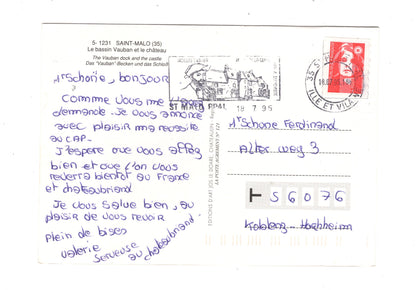 5-1231 SAINT-MALO (35)
Le bassin Vauban et le château
The Vauban dock and the castle
Das "Vauban" Becken und das Schloß
Mr Schone, bonjour
Comme vous me l'
demande. Je vous annonce
avec plaisir ma réussite
au CAP.
J'espere que vous allez
bien et que l'on vous
reverra bientot au France
et chateaubriand
Je vous salue bien, au
plaisir de vous revoir.
Plein de bises
Valerie
Serveuse au chateaubriand
ST MALO PPAL 18 7 95
35 S
18.07.95
ILLE ET VILAINE
EDITIONS D'ART JOS LE DOARÉ, CHÂTEAULIN
LA POSTE AGRÉMENT N° 127
Mr Schone Ferdinand
Alter weg 3
56076
Koblenz-Horchheim